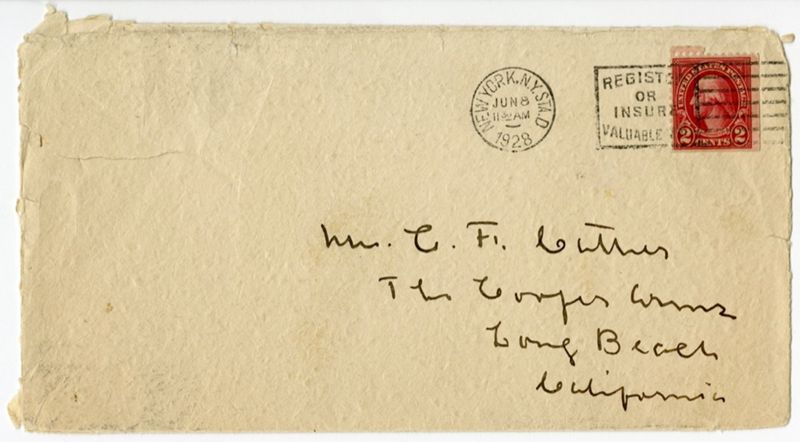 NEW YORK, N.Y. STA. D
JUN 8
AM
1928
REGISTE
OR
INSUR
VALUABLE
UNITED STATES POSTAGE
2 CENTS 2
Mrs. C. F. Cather
The Cooper Arms
Long Beach
California